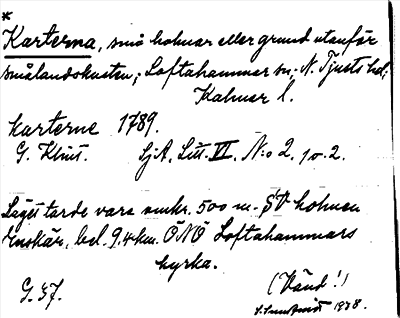 *
Karterna, små holmar eller grund utanför
smålandskusten; Loftahammar sn; N. Tjusts hd;
Kalmar l.
karterne 1789.
G. Klint. SjA. Litt. VI. N:o 2, 1 o. 2.
Läget torde vara omkr. 500 m. SV holmen
Enskär, bel. 9.4 km. ÖNÖ Loftahammars
kyrka.
(Vänd!)
G. 37. 1938.